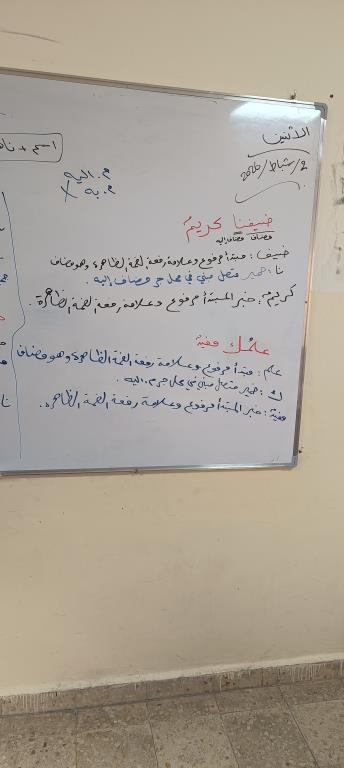 الاثنين
2/شباط/2026
اسم + نا
م. اليه
م. به X
ضيفنا كريمٌ
مضاف مضاف إليه
ضيف: مبتدأ مرفوع وعلامة رفعه الضمة الظاهرة وهو مضاف
نا: ضمير متصل مبني في محل جر مضاف إليه.
كريمٌ: خبر المبتدأ مرفوع وعلامة رفعه الضمة الظاهرة.
علمك
علم: مبتدأ مرفوع وعلامة رفعه الضمة الظاهرة وهو مضاف
ك: ضمير متصل مبني في محل جر م. اليه.
خبر المبتدأ مرفوع وعلامة رفعه الضمة الظاهرة.